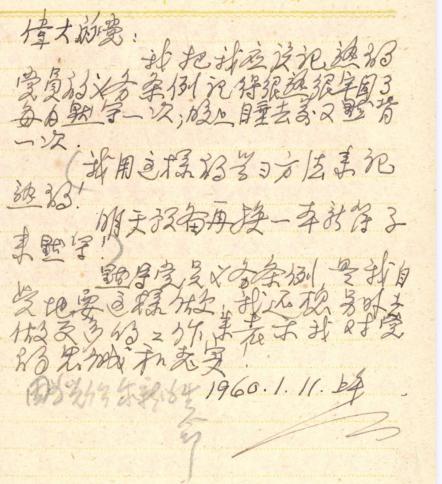 伟大的党：
我把我应该记熟的
党员的义务条例记得很熟很牢固了
每日默写一次，晚上睡去前又默背
一次。
（我用这样的学习方法来记
熟的！
明天预备再换一本新簿子
来默写！）
默写党员义务条例，是我自
觉地要这样做，我还想另外去
做更多的工作，来表示我对党
的忠诚和老实。
1960.1.11.上午